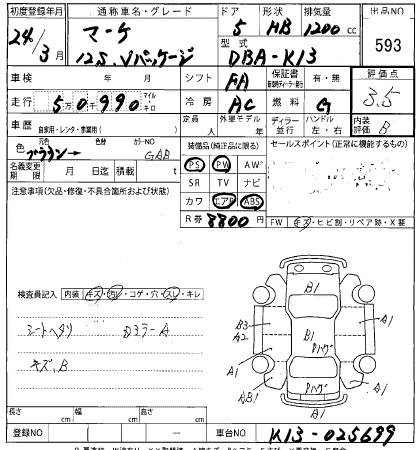 初度登録年月 通称車名・グレード ドア 形状 排気量 出品NO
24/3月 マーチ 5 HB 1200cc 593
12S.Vパッケージ 型式 DBA-K13
車検 年 月 シフト FA 保証書 新車時ディーラー発行 有・無 評価点 3.5
走行 5万0千990 マイル キロ 冷房 AC 燃料 G
車歴 自家用・レンタ・事業用( ) 定員 人 外車モデル 年 ディーラー 並行 ハンドル 左・右 内装評価 B
色 元色 ブラウン→ 色替 カラーNO GAB 装備品(純正品に限る) セールスポイント(正常に機能するもの)
名義変更期限 月 日迄 積載 t PS PW AW
注意事項(欠品・修復・不具合箇所および状態) SR TV ナビ
カワ エアB ABS
R券 8800円 FW キズ・ヒビ割・リペア跡・X要
検査員記入 内装 キズ・汚レ・コゲ・穴・スレ・キレ B1
シートヘタリ Dミラー A B3 A2 B1 A1
キズ.B A1 Pハゲ A1
AB1 Pハゲ
A1
長さ cm 幅 cm 高さ cm
登録NO 車台NO K13-025699